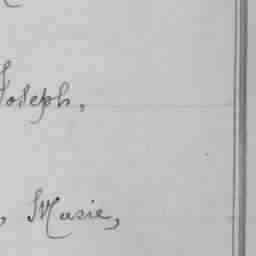 Joseph,
, Musie,